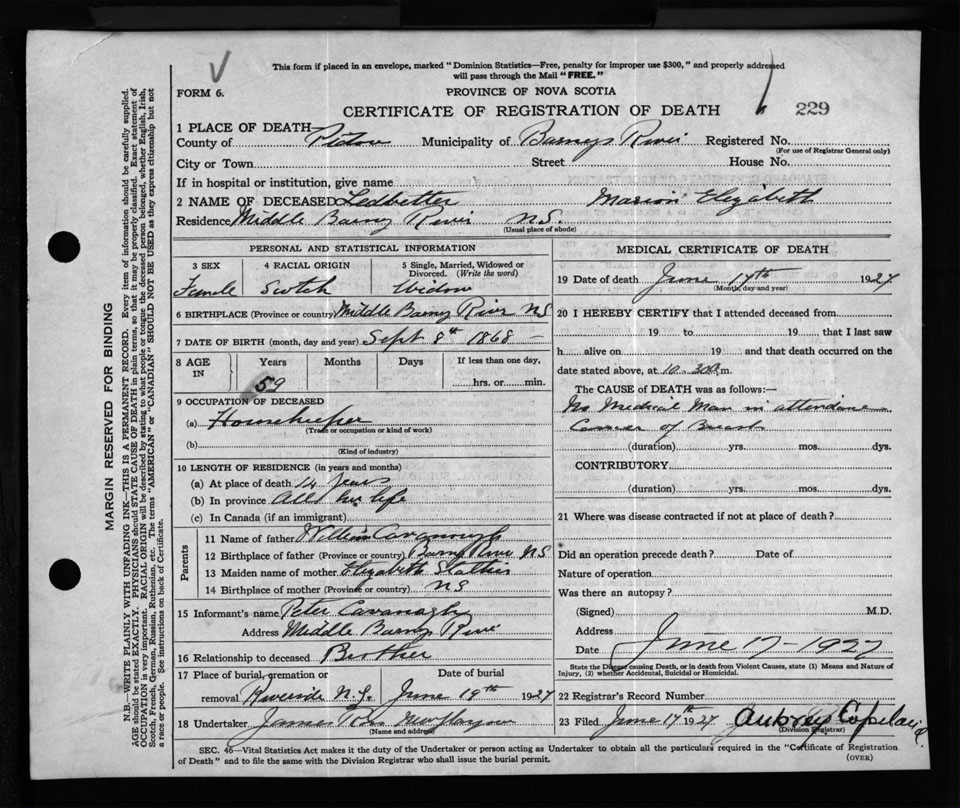 This form if placed in an envelope, marked "Dominion Statistics—Free, penalty for improper use $300," and properly addressed
will pass through the Mail "FREE."
FORM 6.
PROVINCE OF NOVA SCOTIA
CERTIFICATE OF REGISTRATION OF DEATH
229
1 PLACE OF DEATH
County of Pictou Municipality of Barneys River Registered No.
(For use of Registrar General only)
City or Town Street House No.
If in hospital or institution, give name
2 NAME OF DECEASED Ledbetter Marion Elizabeth
Residence Middle Barney River N.S.
(Usual place of abode)
PERSONAL AND STATISTICAL INFORMATION
3 SEX 4 RACIAL ORIGIN 5 Single, Married, Widowed or Divorced. (Write the word)
Female Scotch Widow
6 BIRTHPLACE (Province or country) Middle Barney River NS
7 DATE OF BIRTH (month, day and year) Sept 8th 1868
8 AGE IN Years Months Days If less than one day,
59 hrs. or min.
9 OCCUPATION OF DECEASED
(a) Housekeeper
(Trade or occupation or kind of work)
(b)
(Kind of industry)
10 LENGTH OF RESIDENCE (in years and months)
(a) At place of death 14 years
(b) In province All her life
(c) In Canada (if an immigrant)
Parents
11 Name of father William Cavanough
12 Birthplace of father (Province or country) Barney River NS
13 Maiden name of mother Elizabeth
14 Birthplace of mother (Province or country) NS
15 Informant's name Peter Cavanagh
Address Middle Barney River
16 Relationship to deceased Brother
17 Place of burial, cremation or removal Riverside N.S. Date of burial June 19th 1927
18 Undertaker James
(Name and address)
MEDICAL CERTIFICATE OF DEATH
19 Date of death June 17th 1927
(Month, day and year)
20 I HEREBY CERTIFY that I attended deceased from
19 to 19 , that I last saw
h alive on 19 and that death occurred on the
date stated above, at 10.30 a m.
The CAUSE of DEATH was as follows:—
No Medical Man in attendance
Cancer of Breast
(duration) yrs. mos. dys.
CONTRIBUTORY
(duration) yrs. mos. dys.
21 Where was disease contracted if not at place of death?
Did an operation precede death? Date of
Nature of operation
Was there an autopsy?
(Signed) M.D.
Address
Date June 17-1927
State the Disease causing Death, or in death from Violent Causes, state (1) Means and Nature of
Injury, (2) whether Accidental, Suicidal or Homicidal.
22 Registrar's Record Number
23 Filed June 17th 1927 Aubrey Copeland
(Division Registrar)
SEC. 46—Vital Statistics Act makes it the duty of the Undertaker or person acting as Undertaker to obtain all the particulars required in the "Certificate of Registration
of Death" and to file the same with the Division Registrar who shall issue the burial permit.
(OVER)
MARGIN RESERVED FOR BINDING
N.B.—WRITE PLAINLY WITH UNFADING INK—THIS IS A PERMANENT RECORD. Every item of information should be carefully supplied.
AGE should be stated EXACTLY. PHYSICIANS should STATE CAUSE OF DEATH in plain terms, so that it may be properly classified. Exact statement of
OCCUPATION is very important. RACIAL ORIGIN will be described by stating to what people or tongue the deceased person belonged, whether English, Irish,
Scotch, French, German, Russian, Ruthenian, etc. The terms "AMERICAN" or "CANADIAN" SHOULD NOT BE USED as they express citizenship but not
a race or people. See instructions on back of Certificate.